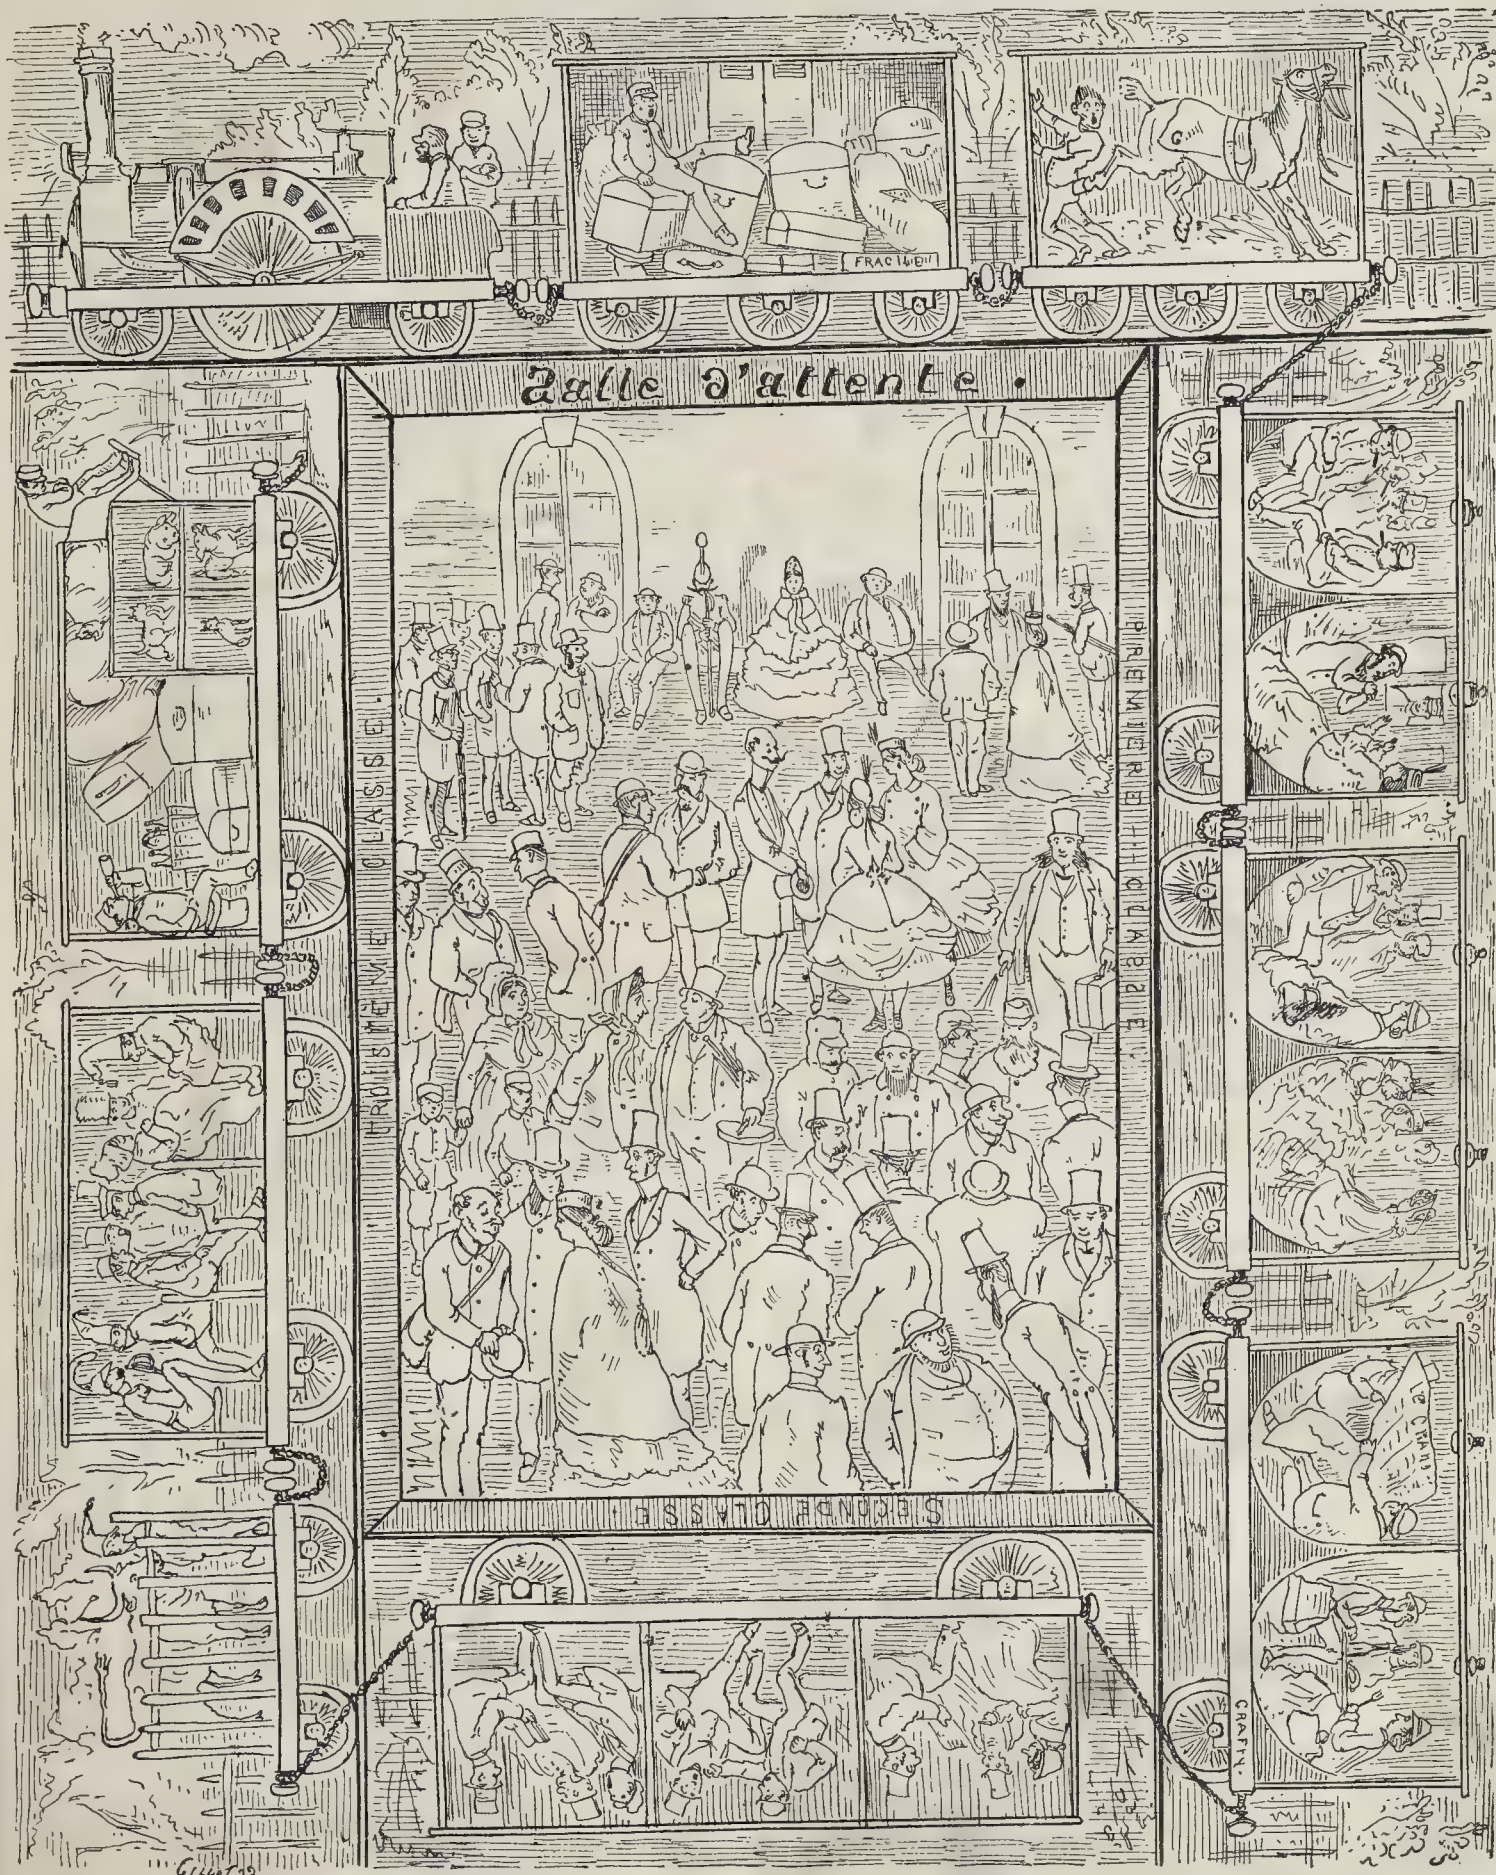 FRAGILE!!
Salle d'attente.
TROISIÈME CLASSE.
PREMIÈRE CLASSE.
SECONDE CLASSE.
CRAFTY
Gillot sc